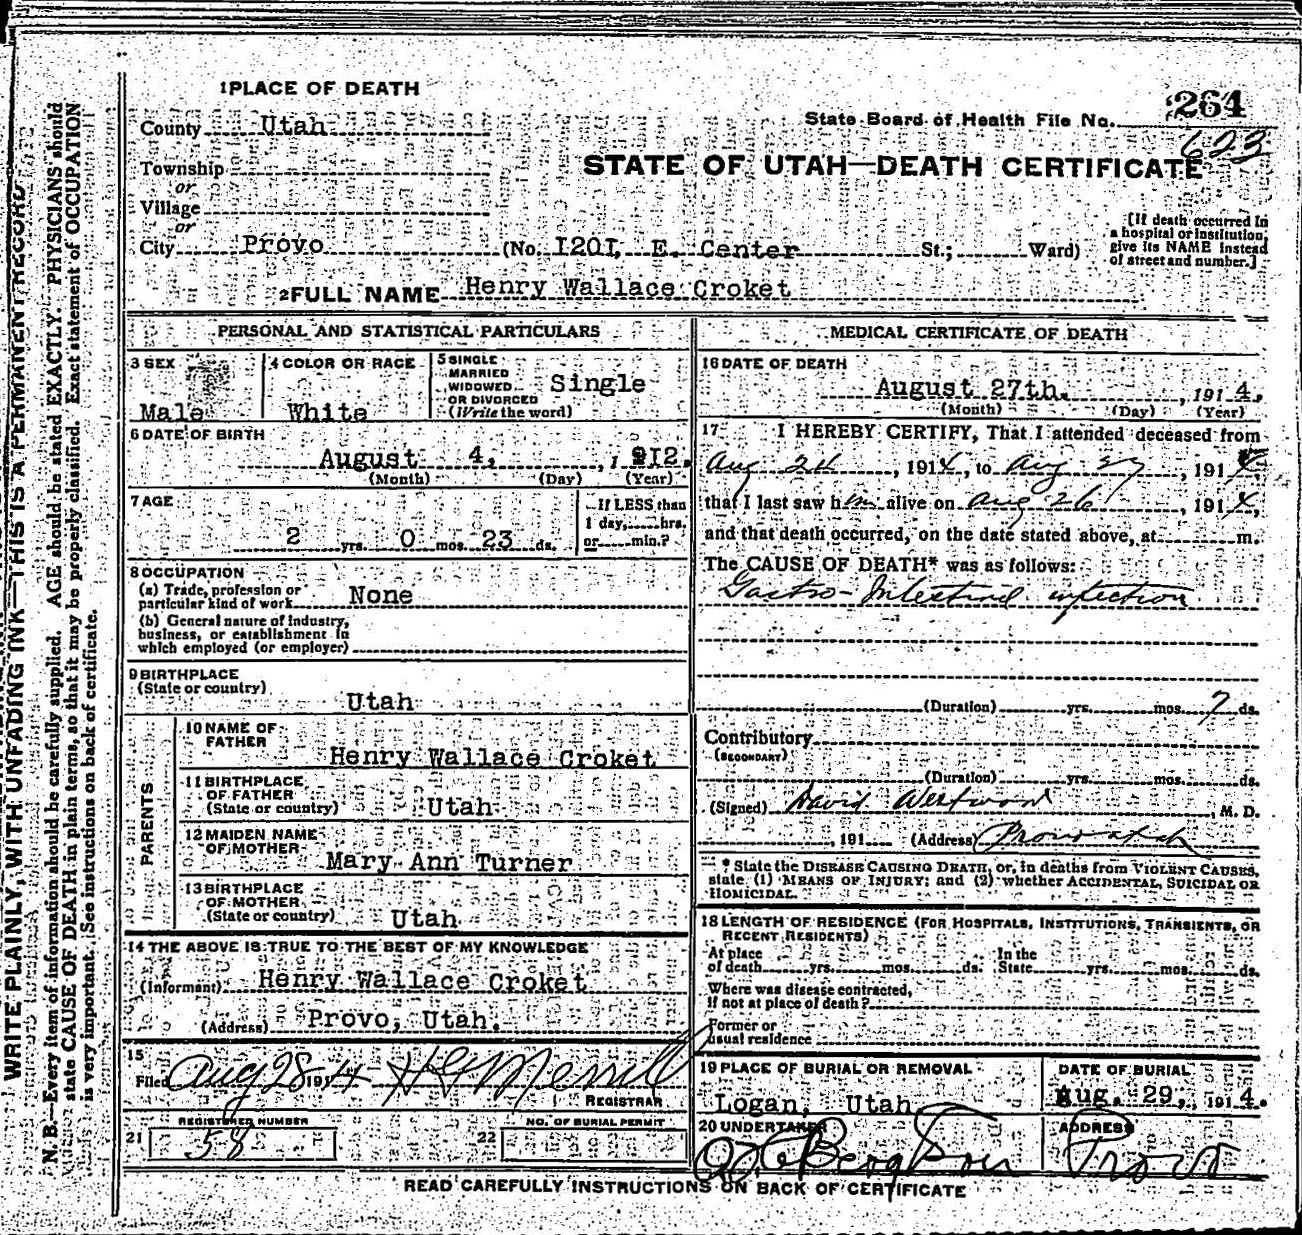 1 PLACE OF DEATH
County Utah
Township
or
Village
or
City Provo (No. 1201, E. Center St.; Ward)
[If death occurred in
a hospital or institution,
give its NAME instead
of street and number.]
State Board of Health File No. 264
623
STATE OF UTAH—DEATH CERTIFICATE
2 FULL NAME Henry Wallace Croket
PERSONAL AND STATISTICAL PARTICULARS
3 SEX
Male
4 COLOR OR RACE
White
5 SINGLE
MARRIED
WIDOWED
OR DIVORCED
(Write the word)
Single
6 DATE OF BIRTH
August 4, 1912.
(Month) (Day) (Year)
7 AGE
2 yrs. 0 mos. 23 ds.
If LESS than
1 day, hrs.
or min.?
8 OCCUPATION
(a) Trade, profession or
particular kind of work None
(b) General nature of industry,
business, or establishment in
which employed (or employer)
9 BIRTHPLACE
(State or country)
Utah
PARENTS
10 NAME OF
FATHER
Henry Wallace Croket
11 BIRTHPLACE
OF FATHER
(State or country) Utah
12 MAIDEN NAME
OF MOTHER
Mary Ann Turner
13 BIRTHPLACE
OF MOTHER
(State or country) Utah
14 THE ABOVE IS TRUE TO THE BEST OF MY KNOWLEDGE
(Informant) Henry Wallace Croket
(Address) Provo, Utah.
15
Filed Aug 28 1914 H G Merrill
REGISTRAR
REGISTERED NUMBER
21 58
NO. OF BURIAL PERMIT
22
MEDICAL CERTIFICATE OF DEATH
16 DATE OF DEATH
August 27th. , 1914.
(Month) (Day) (Year)
17 I HEREBY CERTIFY, That I attended deceased from
Aug 24 , 1914, to Aug 27 , 191
that I last saw him alive on Aug 26 , 1914,
and that death occurred, on the date stated above, at m.
The CAUSE OF DEATH* was as follows:
Gastro-Intestinal infection
(Duration) yrs. mos. 7 ds.
Contributory
(SECONDARY)
(Duration) yrs. mos. ds.
(Signed) David Westwood , M. D.
, 191 (Address) Provo Utah
* State the DISEASE CAUSING DEATH, or, in deaths from VIOLENT CAUSES,
state (1) MEANS OF INJURY; and (2) whether ACCIDENTAL, SUICIDAL OR
HOMICIDAL.
18 LENGTH OF RESIDENCE (FOR HOSPITALS, INSTITUTIONS, TRANSIENTS, OR
RECENT RESIDENTS)
At place
of death yrs. mos. ds.
In the
State yrs. mos. ds.
Where was disease contracted,
if not at place of death?
Former or
usual residence
19 PLACE OF BURIAL OR REMOVAL
Logan, Utah
DATE OF BURIAL
Aug. 29, 1914.
20 UNDERTAKER
ADDRESS
Provo
READ CAREFULLY INSTRUCTIONS ON BACK OF CERTIFICATE
WRITE PLAINLY, WITH UNFADING INK—THIS IS A PERMANENT RECORD
N. B.—Every item of information should be carefully supplied. AGE should be stated EXACTLY. PHYSICIANS should
state CAUSE OF DEATH in plain terms, so that it may be properly classified. Exact statement of OCCUPATION
is very important. (See instructions on back of certificate.